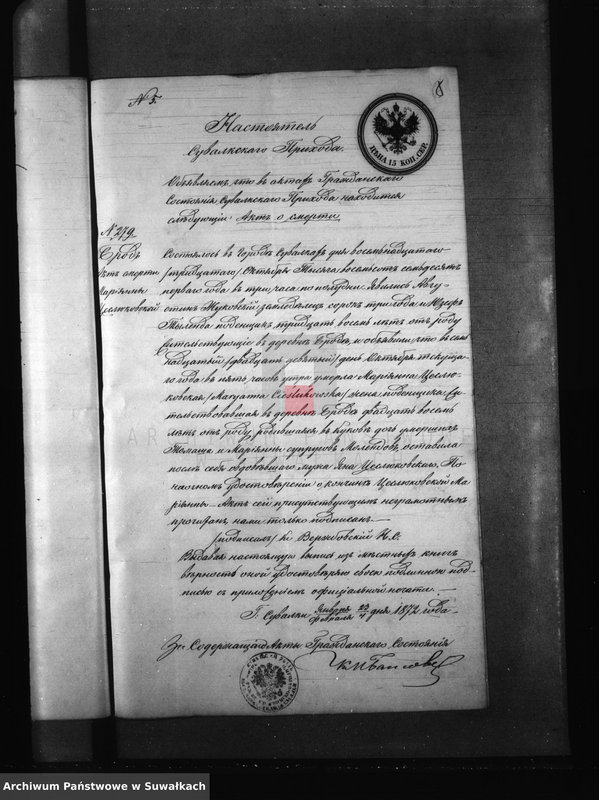 № 5.
8
Настоятель
Сувалкскаго Прихода.
ЦѢНА 15 КОП. СЕР.
Объявляемъ, что въ актахъ Гражданскаго
Состоянія Сувалкскаго Прихода находится
слѣдующій Актъ о смерти
№ 279.
Состоялось въ Городѣ Сувалкахъ дня восемьнадцатаго
/тридцатаго/ Октября Тысяча восемьсотъ семьдесятъ
перваго года въ три часа по полудни. Явились Авгу-
стинъ Жуковскій земледѣлецъ сорокъ три года и Юзефъ
поденщикъ тридцать восемь лѣтъ отъ роду
жительствующіе въ деревнѣ и объявили, что въ семь-
надцатый /двадцать девятый/ день Октября текуща-
го года въ пять часовъ утра умерла Маріянна Цеслю-
ковская /Maryanna Cieślukowska/ жена поденщика, жи-
тельствовавшая въ деревнѣ двадцать восемь
лѣтъ отъ роду, родившаяся въ дочь умершихъ
Томаша и Маріянны супруговъ оставила
послѣ себя овдовѣвшаго мужа Яна Цеслюковскаго. По
наочномъ удостовѣреніи о кончинѣ Цеслюковской Ма-
ріянны. Актъ сей присутствующимъ неграмотнымъ
прочитанъ, нами только подписанъ.
/подписалъ/ Кс. Вержбовскій Н.С.
Выдавая настоящую выпись изъ мѣстныхъ книгъ
вѣрность оной удостовѣряю своею подлинною под-
писью съ приложеніемъ официальной печати.
Г. Сувалки Января 23 / Февраля 4 дня 1872 года.
За Содержащаго Акты Гражданскаго Состоянія
Archiwum Państwowe w Suwałkach